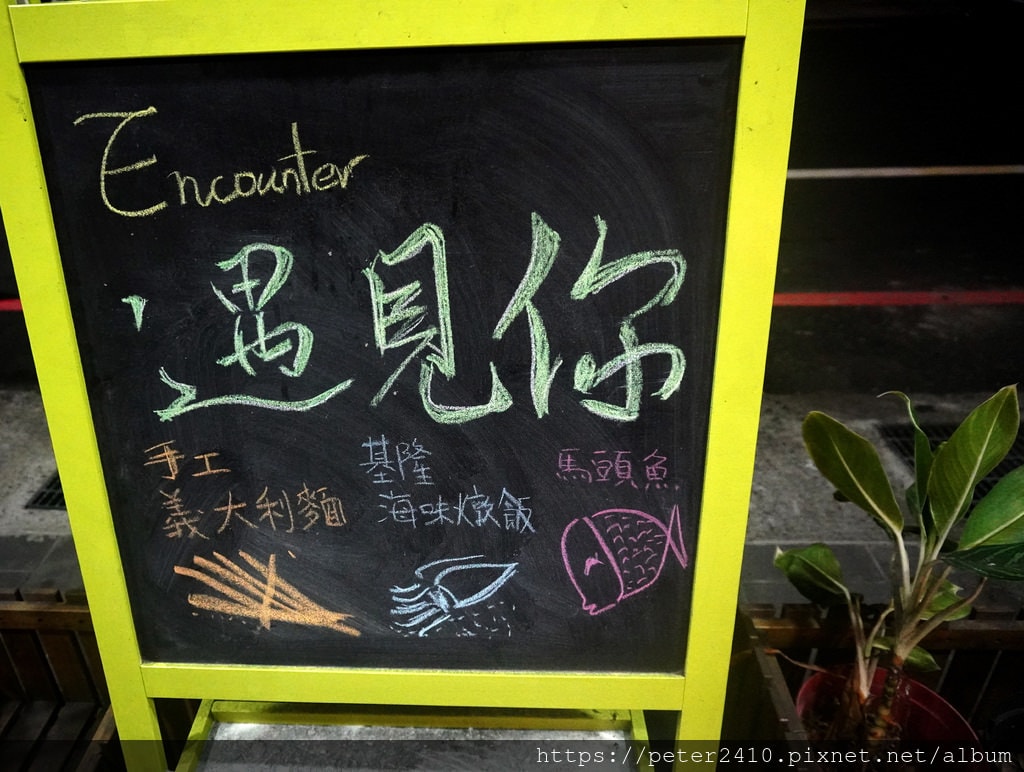 Encounter
遇見你
手工
義大利麵
基隆
海味燉飯
馬頭魚
https://peter2410.pixnet.net/album